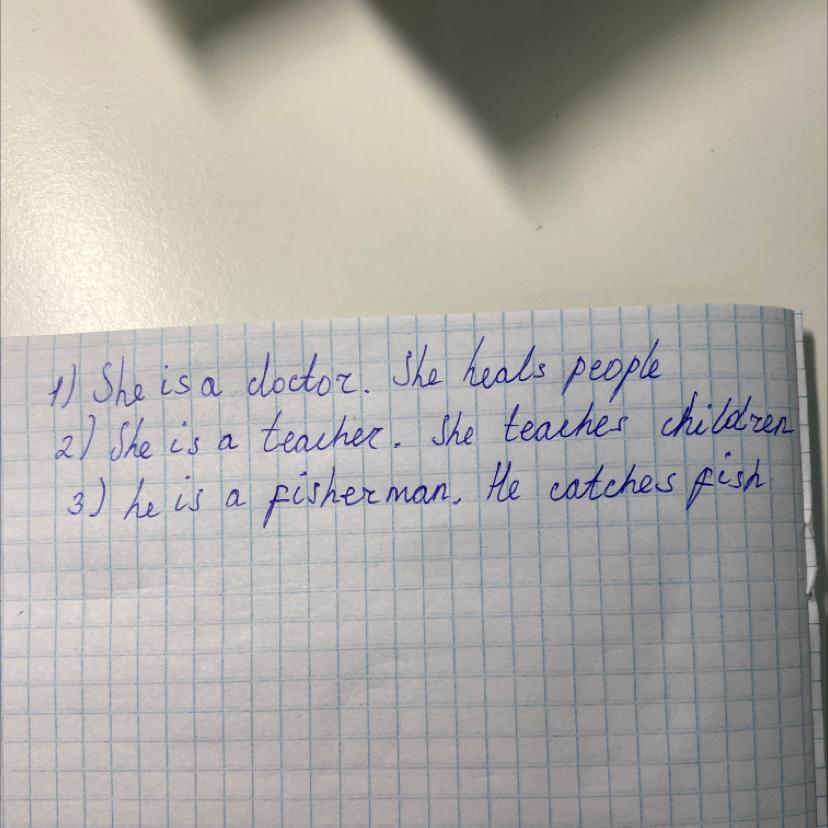 1) She is a doctor. She heals people
2) She is a teacher. She teaches children
3) he is a fisherman. He catches fish